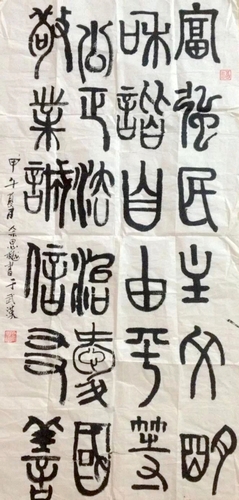 富强民主文明
和谐自由平等
公正法治爱国
敬业诚信友善
甲午夏月余思\書于武漢